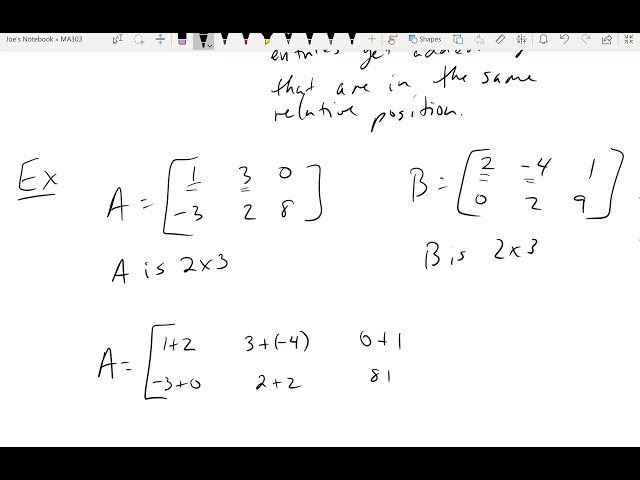 Joe's Notebook » MA303
Shapes
entries get
that are in the same
relative position.
Ex A = [ 1 3 0 B = [ 2 -4 1
-3 2 8 ] 0 2 9 ]
A is 2x3 B is 2x3
A = [ 1+2 3+(-4) 0+1
-3+0 2+2 8 |